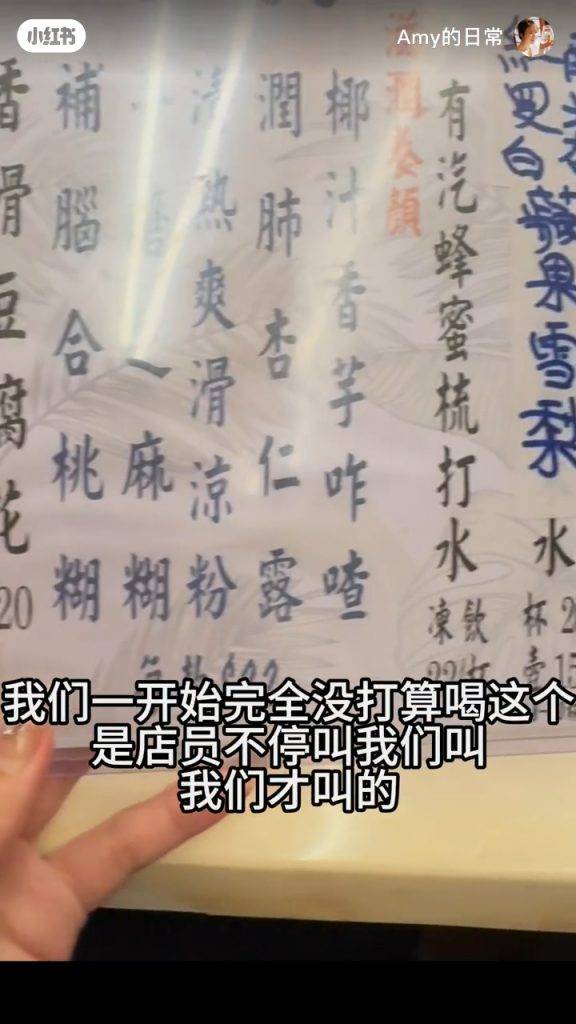 小红书
Amy的日常
白蘋果雪梨
水
杯 2
有汽蜂蜜梳打水
凍飲
滋潤養顏
椰汁香芋咋喳
潤肺杏仁露
清熱爽滑涼粉
麻糊
補腦合桃糊
香滑豆腐花
20
我们一开始完全没打算喝这个
是店员不停叫我们叫
我们才叫的